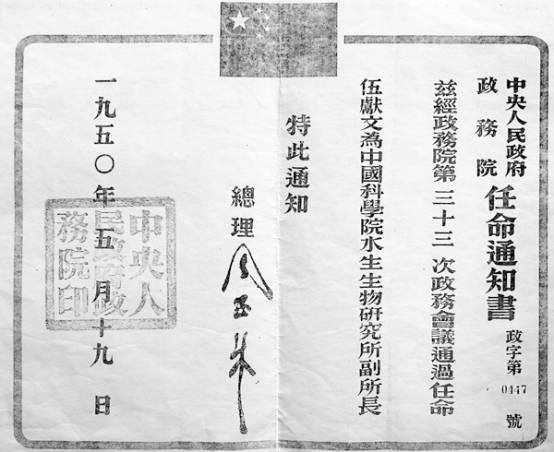 中央人民政府
政務院
任命通知書
政字第 0447 號
茲經政務院第三十三次政務會議通過任命
伍獻文為中國科學院水生生物研究所副所長
特此通知
總理 周恩来
一九五〇年五月十九日
中央人
民政府政
務院印